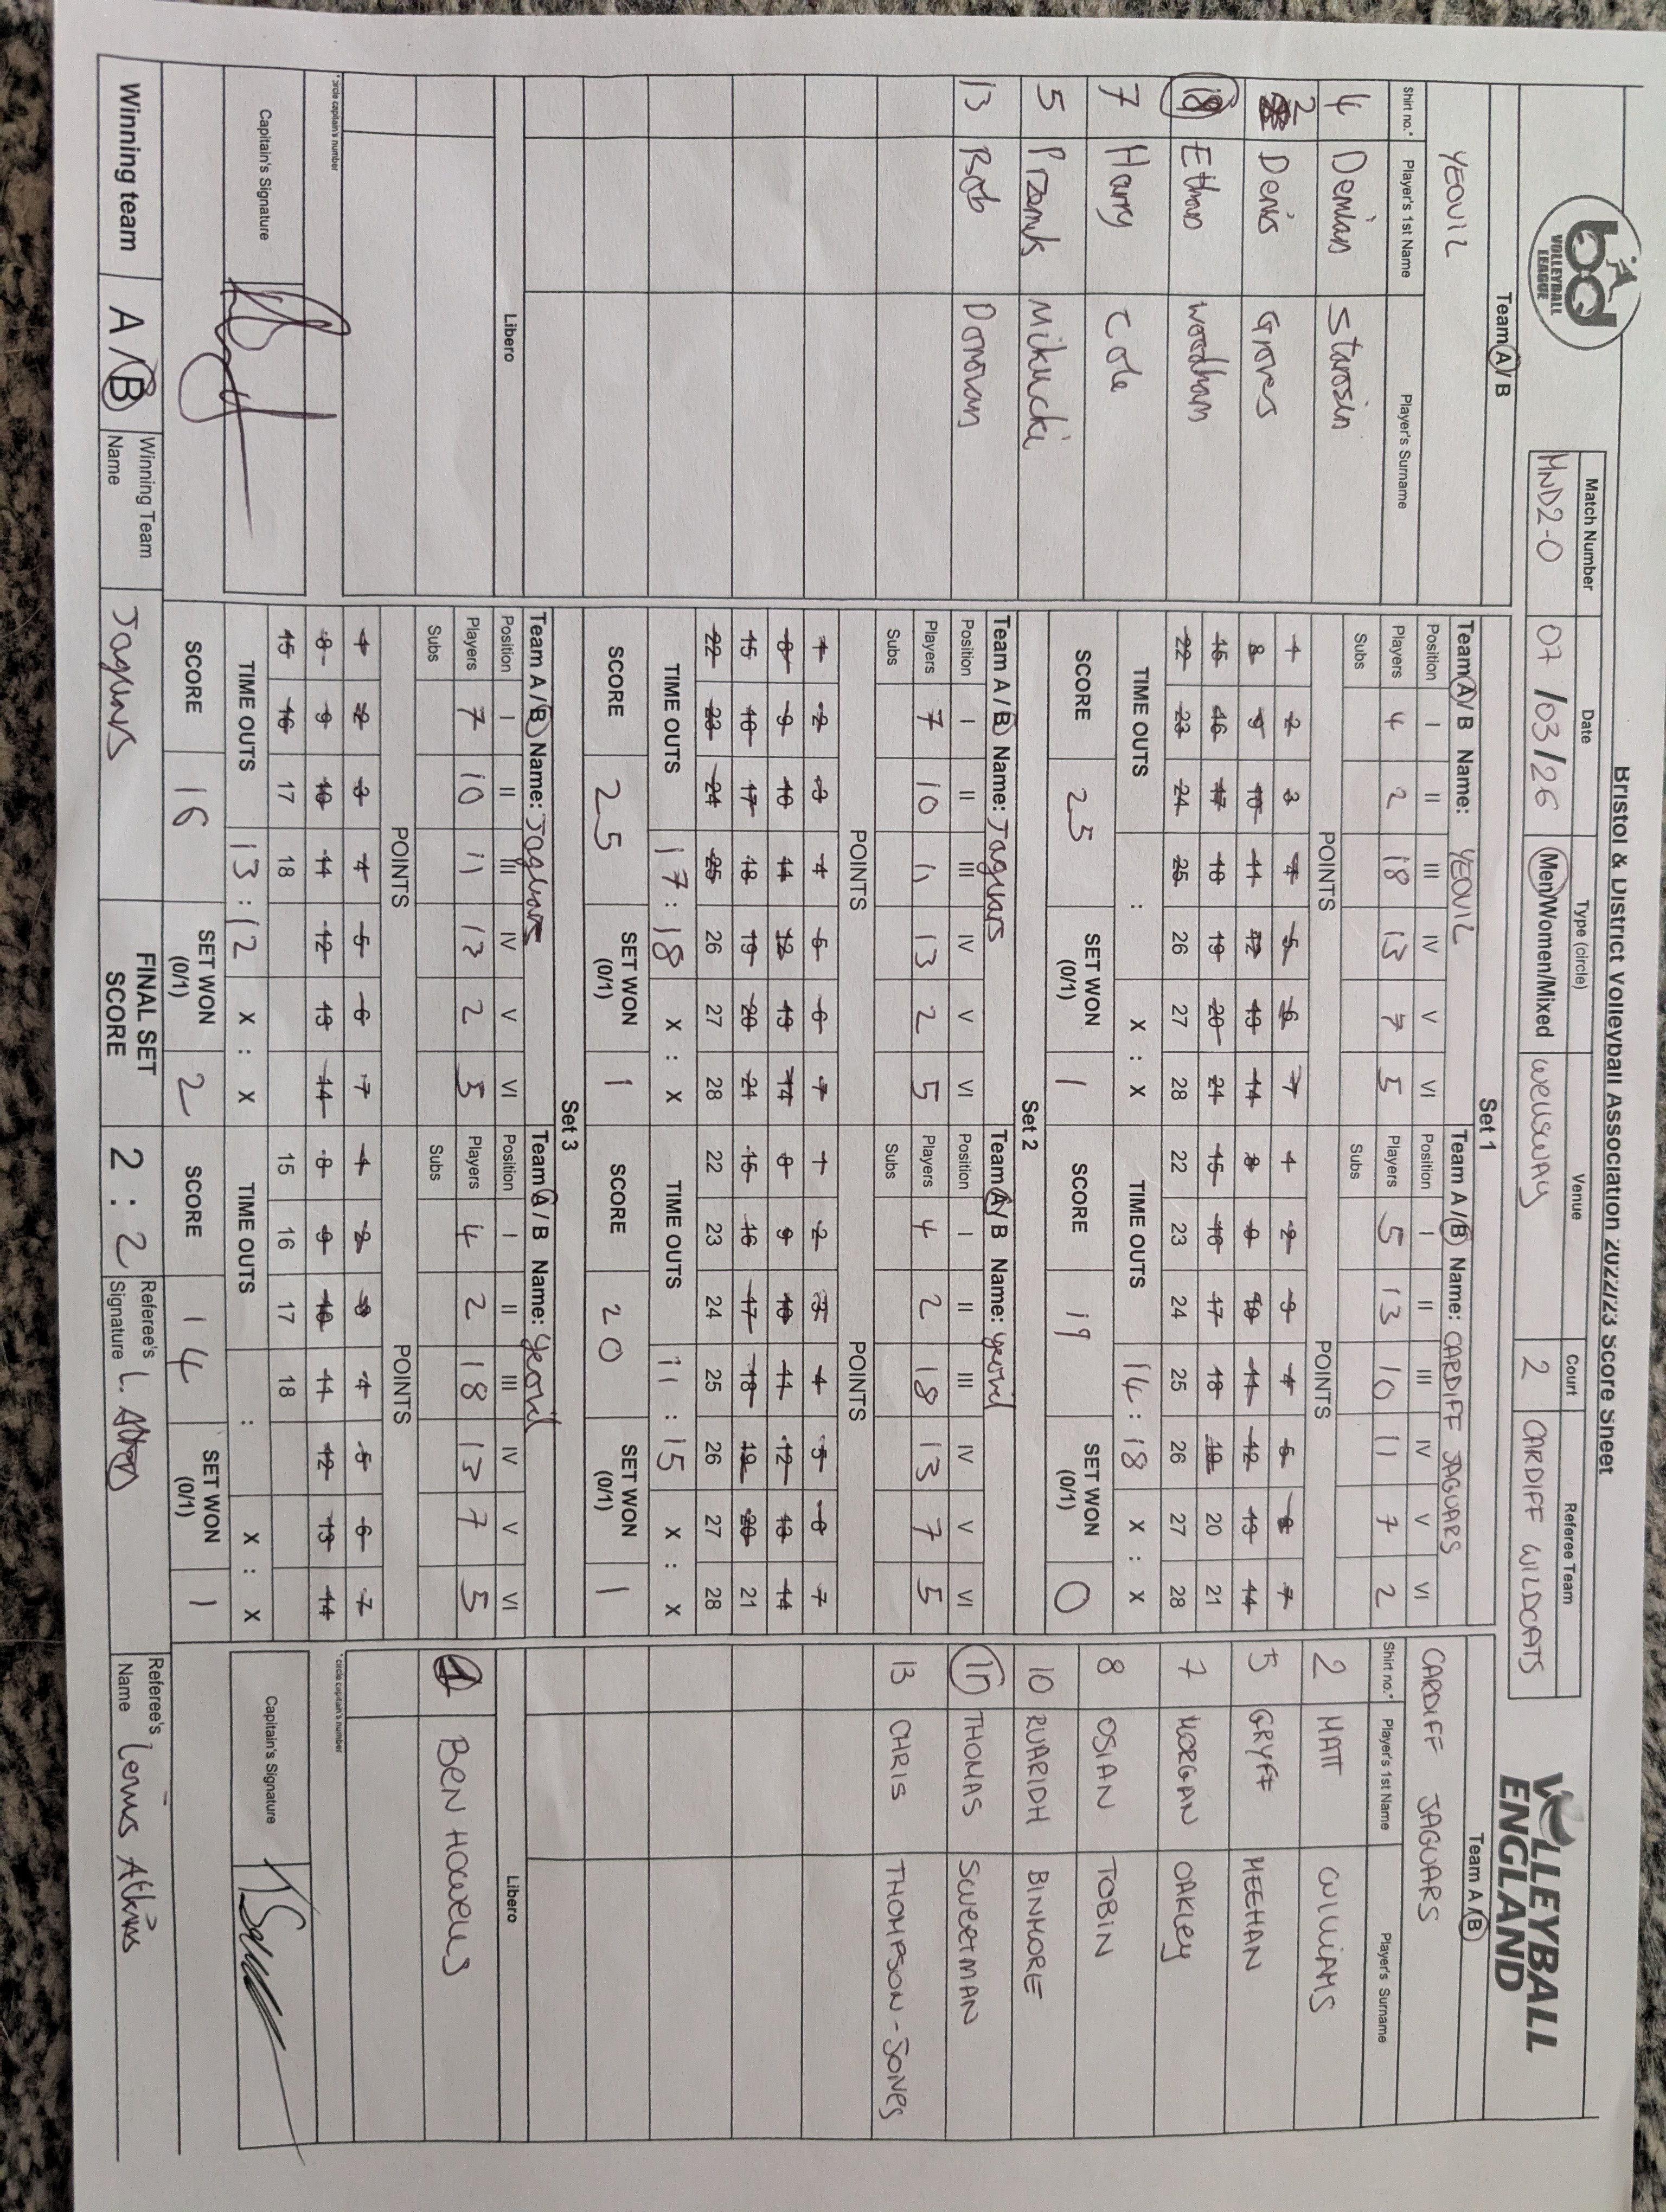 Bristol & District Volleyball Association 2022/23 Score Sheet
bd
VOLLEYBALL
LEAGUE
VOLLEYBALL
ENGLAND
Match Number Date Type (circle) Venue Court Referee Team
MND2-0 07/03/26 Men/Women/Mixed WELLSWAY 2 CARDIFF WILDCATS
Team A / B
YEOVIL
Shirt no.* Player's 1st Name Player's Surname
4 Demian Starosin
2 Denis Groves
18 Ethan Woodham
7 Harry Cole
5 Przemek Mikucki
13 Rob Donovan
Libero
*circle captain's number
Capitain's Signature
Set 1
Team A / B Name: YEOVIL
Position I II III IV V VI
Players 4 2 18 13 7 5
Subs
POINTS
1 2 3 4 5 6 7
8 9 10 11 12 13 14
15 16 17 18 19 20 21
22 23 24 25 26 27 28
TIME OUTS : X : X
SCORE 25 SET WON (0/1) 1
Team A / B Name: CARDIFF JAGUARS
Position I II III IV V VI
Players 5 13 10 11 7 2
Subs
POINTS
1 2 3 4 5 6 7
8 9 10 11 12 13 14
15 16 17 18 19 20 21
22 23 24 25 26 27 28
TIME OUTS 14 : 18 X : X
SCORE 19 SET WON (0/1) 0
Set 2
Team A / B Name: Jaguars
Position I II III IV V VI
Players 7 10 11 13 2 5
Subs
POINTS
1 2 3 4 5 6 7
8 9 10 11 12 13 14
15 16 17 18 19 20 21
22 23 24 25 26 27 28
TIME OUTS 17 : 18 X : X
SCORE 25 SET WON (0/1) 1
Team A / B Name: yeovil
Position I II III IV V VI
Players 4 2 18 13 7 5
Subs
POINTS
1 2 3 4 5 6 7
8 9 10 11 12 13 14
15 16 17 18 19 20 21
22 23 24 25 26 27 28
TIME OUTS 11 : 15 X : X
SCORE 20 SET WON (0/1) 1
Set 3
Team A / B Name: Jaguars
Position I II III IV V VI
Players 7 10 11 13 2 5
Subs
POINTS
1 2 3 4 5 6 7
8 9 10 11 12 13 14
15 16 17 18
TIME OUTS 13 : 12 X : X
SCORE 16 SET WON (0/1) 2
Team A / B Name: Yeovil
Position I II III IV V VI
Players 4 2 18 13 7 5
Subs
POINTS
1 2 3 4 5 6 7
8 9 10 11 12 13 14
15 16 17 18
TIME OUTS : X : X
SCORE 14 SET WON (0/1) 1
Team A / B
CARDIFF JAGUARS
Shirt no.* Player's 1st Name Player's Surname
2 MATT WILLIAMS
5 GRYFF MEEHAN
7 MORGAN OAKLEY
8 OSIAN TOBIN
10 RUARIDH BINMORE
11 THOMAS SWEETMAN
13 CHRIS THOMPSON-JONES
Libero
1 BEN HOWELLS
* circle captain's number
Capitain's Signature
Winning team A / B Winning Team Name Jaguars FINAL SET SCORE 2 : 2 Referee's Signature Referee's Name Lewis Atkins